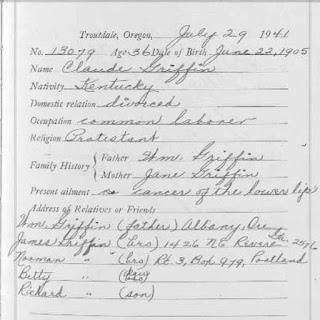 Troutdale, Oregon, July 29 1941
No. 13079 Age 36 Date of Birth June 22, 1905
Name Claude Griffin
Nativity Kentucky
Domestic relation divorced
Occupation common laborer
Religion Protestant
Family History { Father Wm. Griffin
Mother Jane Griffin
Present ailment cancer of the lower lip
Address of Relatives or Friends
Wm. Griffin (father) Albany, Ore
James Griffin (Bro) 1426 N.E. Revere
Norman " (Bro) Rt. 3, Box 979, Portland
Betty "
Richard " (son)